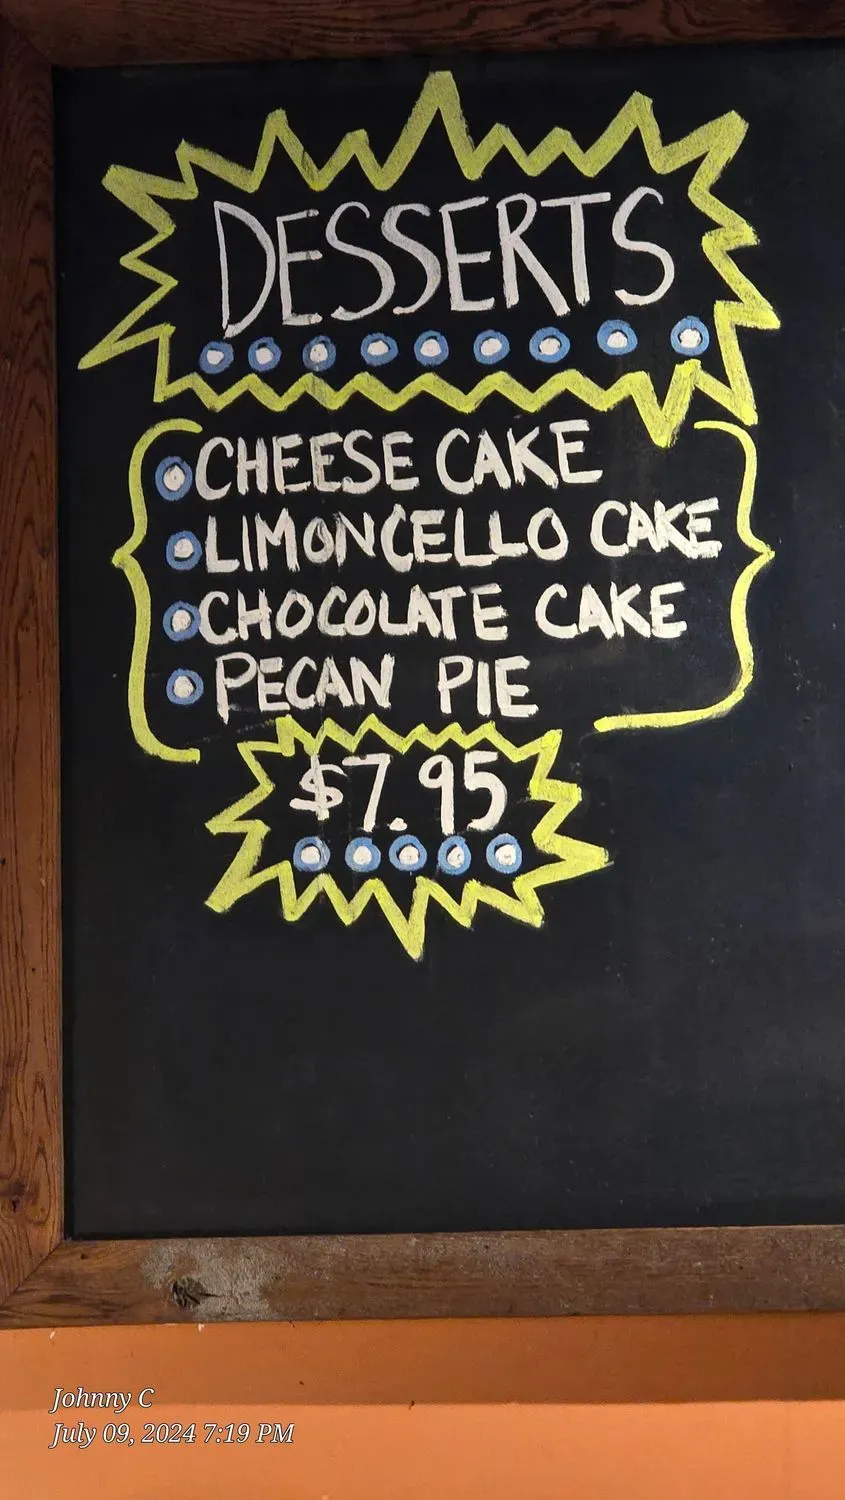 DESSERTS
CHEESE CAKE
LIMONCELLO CAKE
CHOCOLATE CAKE
PECAN PIE
$7.95
Johnny C
July 09, 2024 7:19 PM